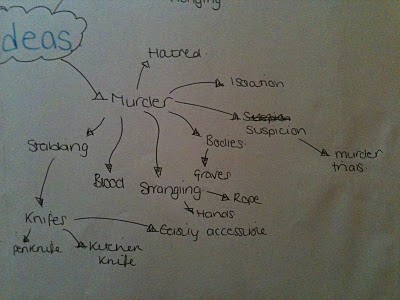 Hanging
Ideas
Hatred
Murder
Isolation
Suspicion
murder
trials
Bodies
Graves
Stabbing
Blood
Strangling
Rope
Hands
Knifes
Easily accessible
penknife
Kitchen
Knife